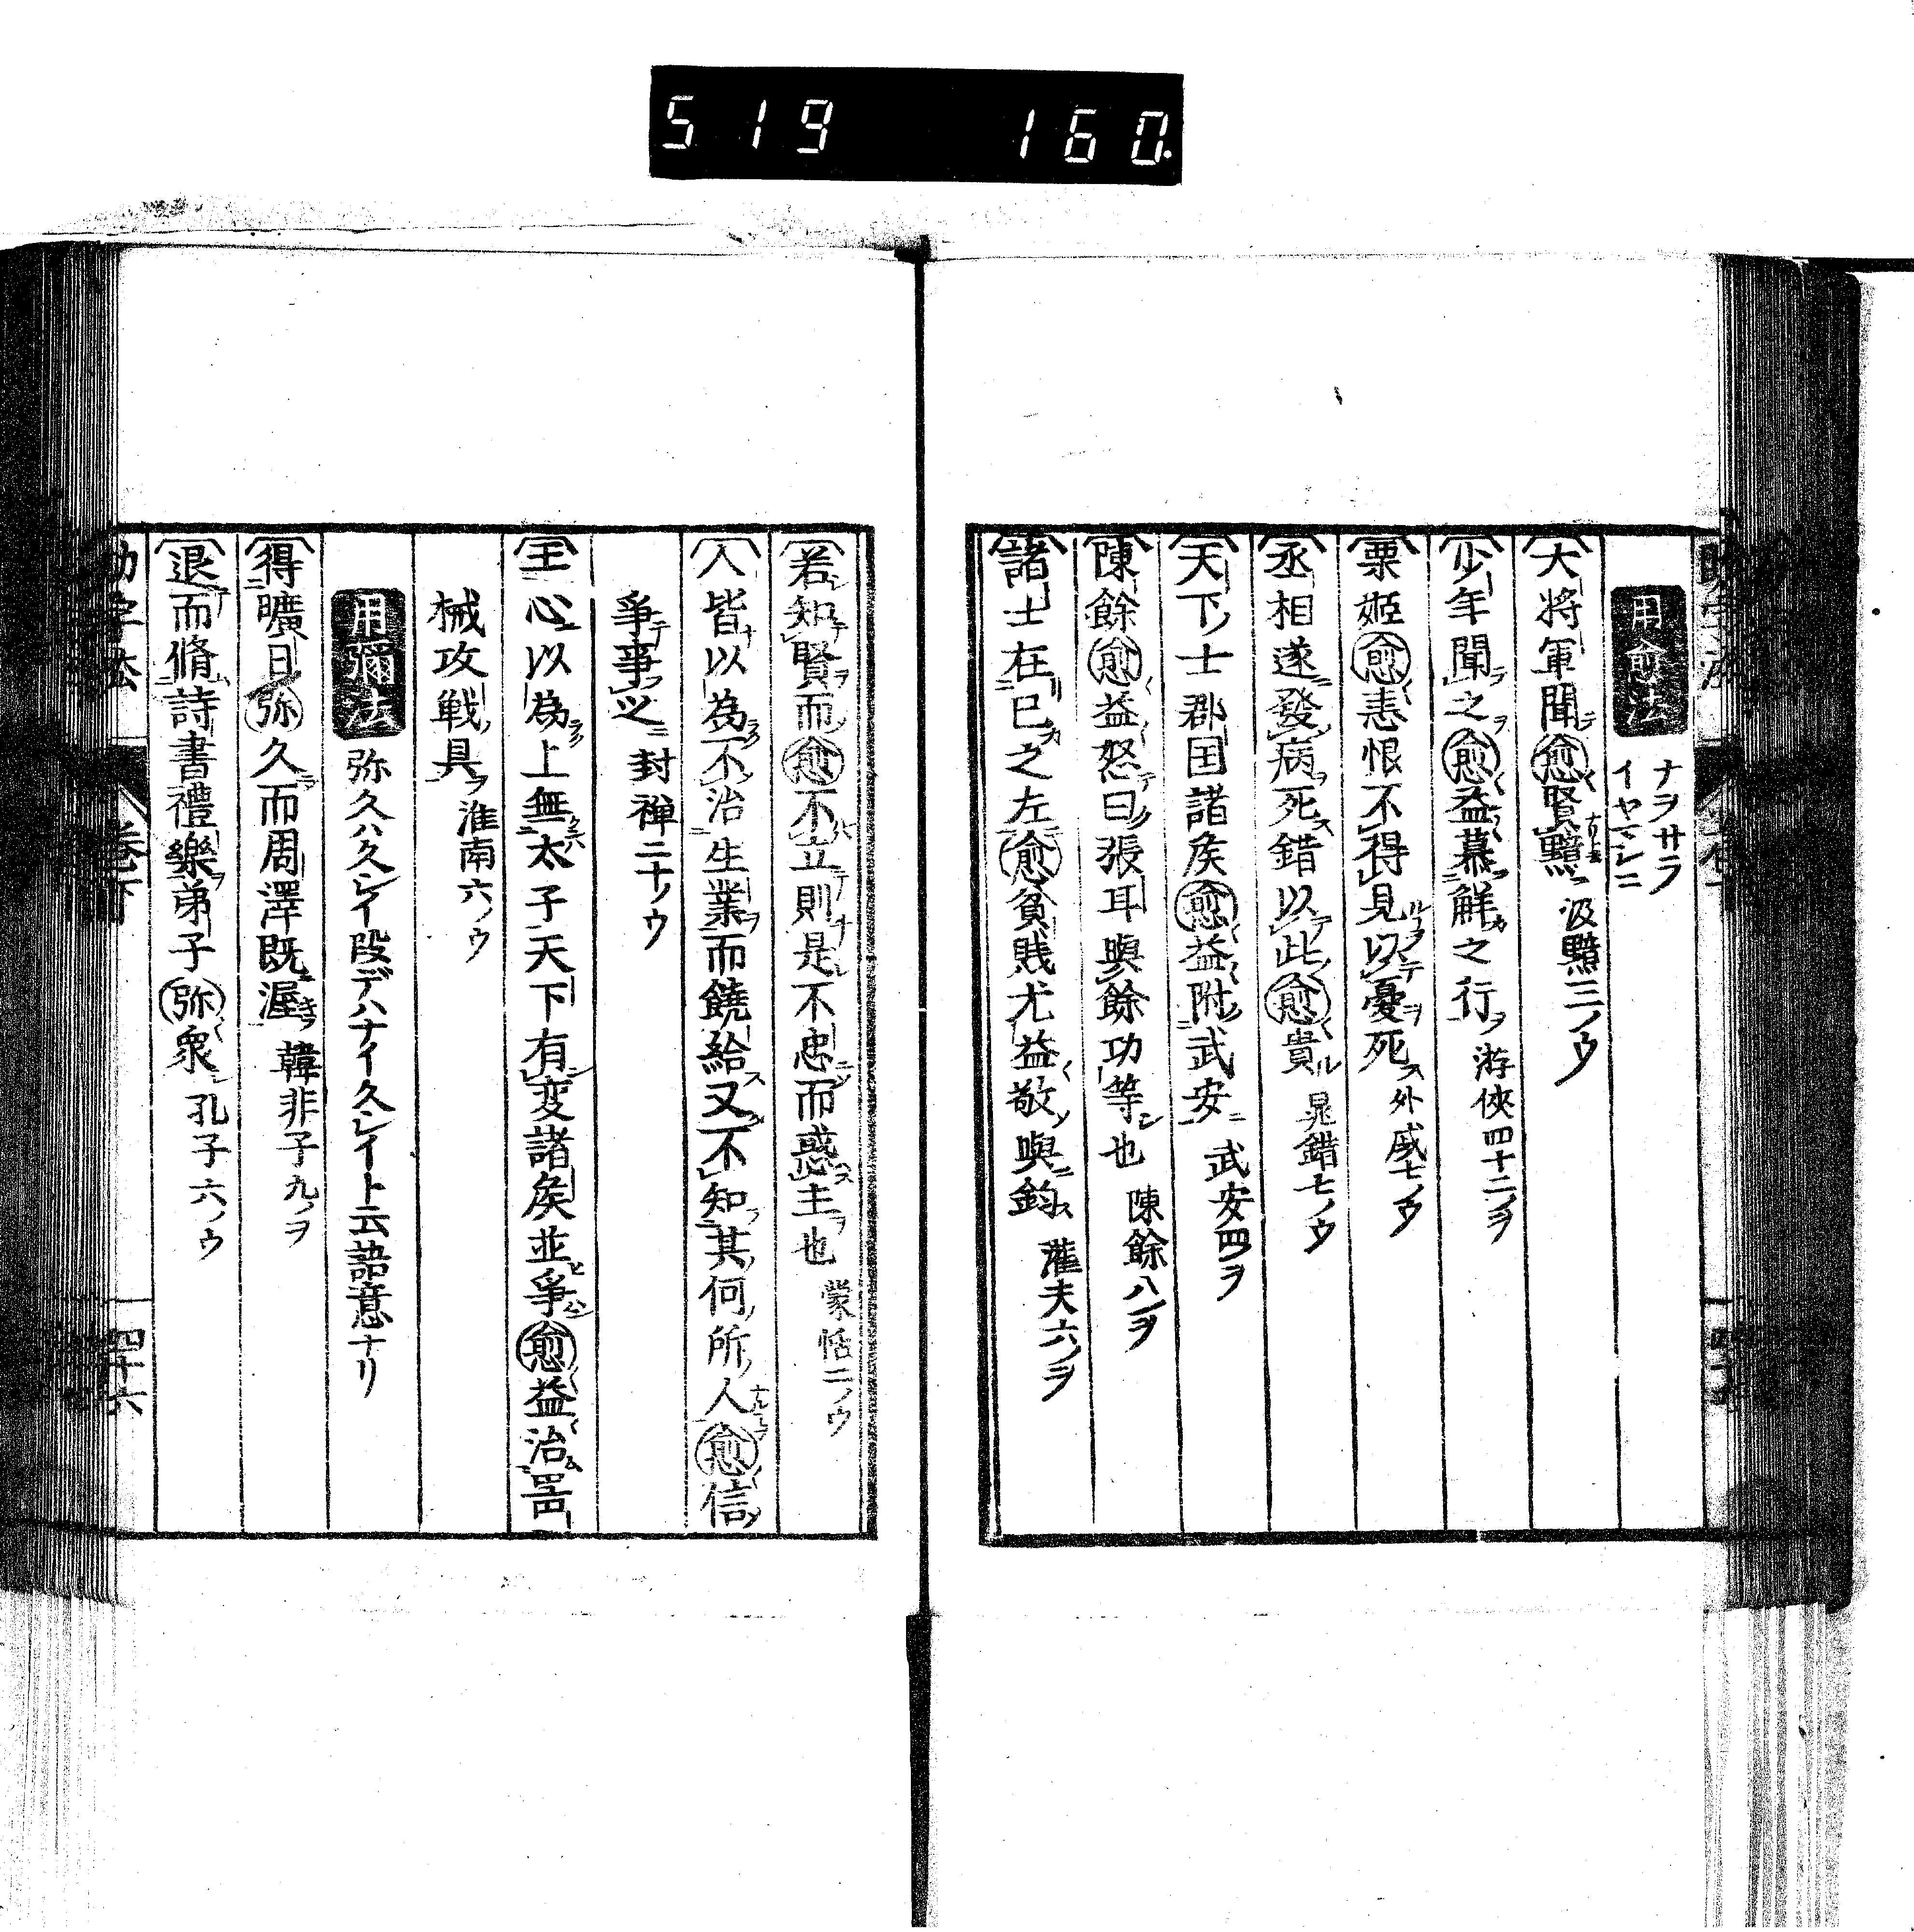 519 160.
用愈法 ナヲサラ イヤマシニ
大將軍聞愈賢黯 汲黯三ノウ
少年聞之愈益慕解之行 游俠四十二ノヲ
栗姬愈恚恨不得見以憂死 外戚七ノウ
丞相遂發病死錯以此愈貴 晁錯七ノウ
天下士郡国諸侯愈益附武安 武安四ノヲ
陳餘愈益怒曰張耳與餘功等也 陳餘八ノヲ
諸士在已之左愈貧賎尤益敬與鈞 灌夫六ノヲ
若知賢而愈不立則是不忠而惑主也 蒙恬二ノウ
人皆以為不治生業而饒給又不知其何所人愈信
爭事之 封禅二十ノウ
王心以為上無太子天下有変諸侯並爭愈益治噐
械攻戦具 淮南六ノウ
用彌法 弥久ハ久シイ段デハナイ久シイト云語意ナリ
得曠日弥久而周澤既渥 韓非子九ノヲ
退而脩詩書禮樂弟子弥衆 孔子六ノウ
助字法 卷下 四十六